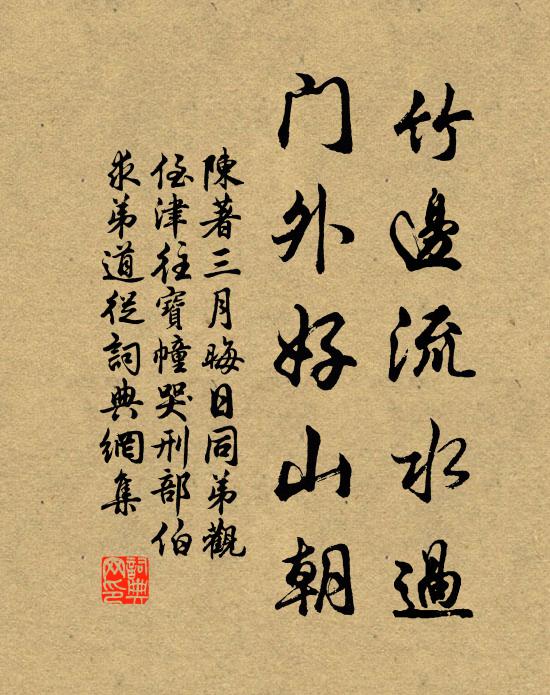 竹邊流水過
门外好山朝
陳著三月晦日同弟觀
侄津往寶幢哭刑部伯
求弟道從詞典網集
詞典网印